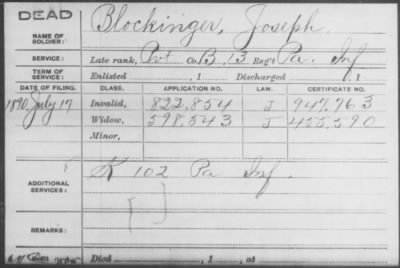 DEAD
NAME OF SOLDIER: Blockinger, Joseph.
SERVICE: Late rank, Pvt Co. B, 13 Reg't Pa. Inf
TERM OF SERVICE: Enlisted , 1 Discharged , 1
DATE OF FILING. CLASS. APPLICATION NO. LAW. CERTIFICATE NO.
1890, July 17 Invalid, 822,854 J 947,763
Widow, 598,543 J 455,590
Minor,
ADDITIONAL SERVICES: K 102 Pa Inf.
REMARKS:
Died , 1 , at